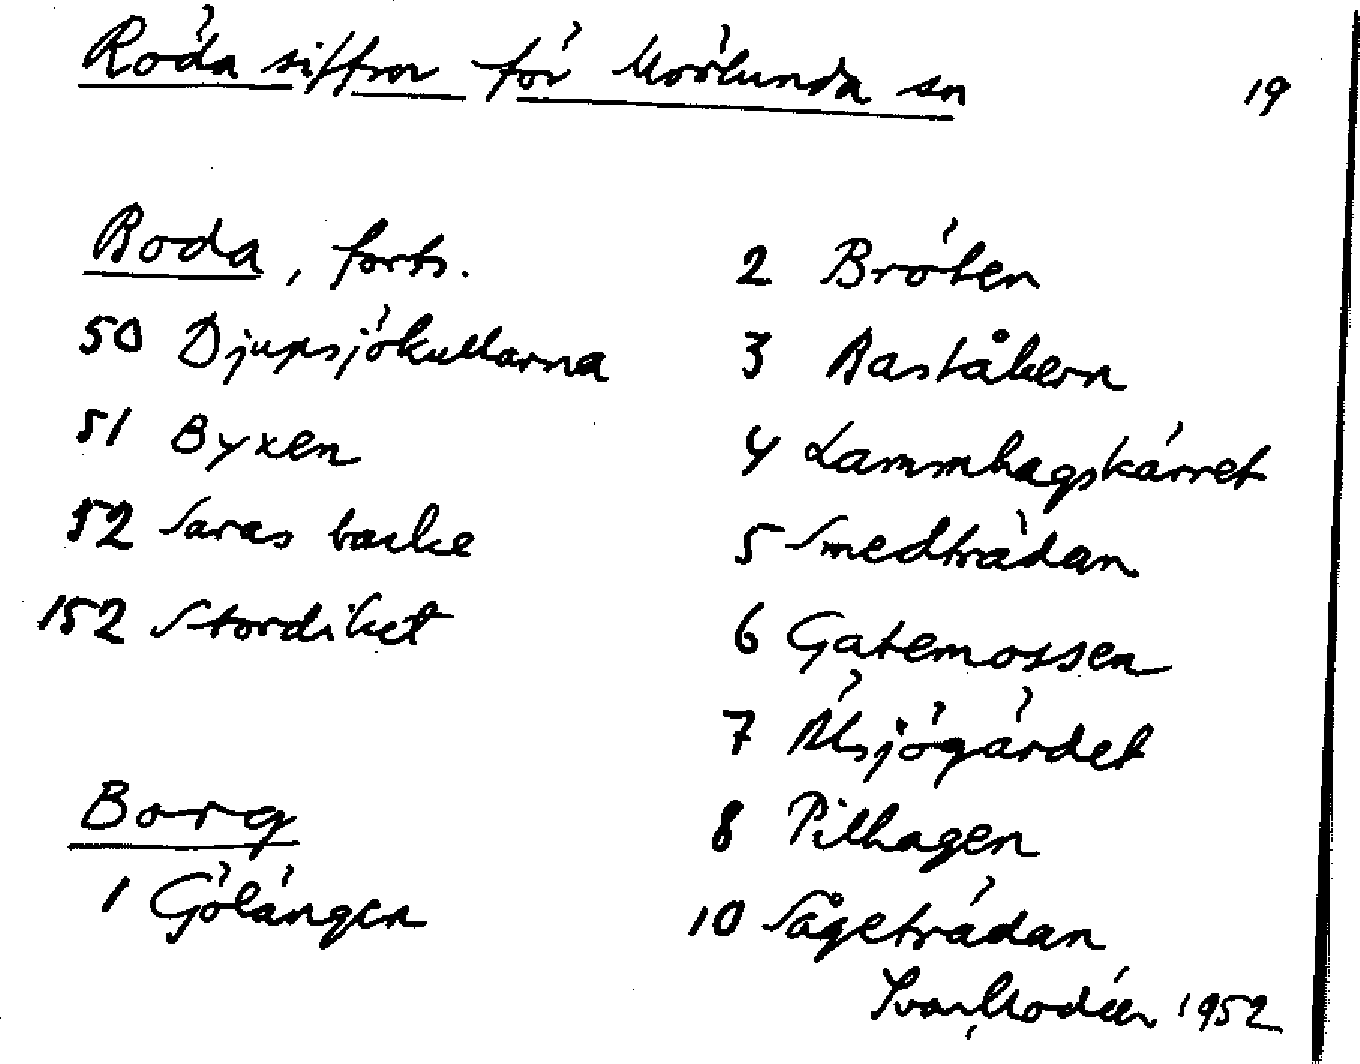 Röda siffror för Mörlunda sn
19
Roda, forts.
50 Djupsjökullarna
51 Byxen
52 Saras backe
152 Stordiket
Borg
1 Gölängen
2 Bröten
3 Raståkern
4 Lammhagskärret
5 Smedträdan
6 Gatemossen
7 Älsjögärdet
8 Pilhagen
10 Sågeträdan
Ivar Modéer 1952